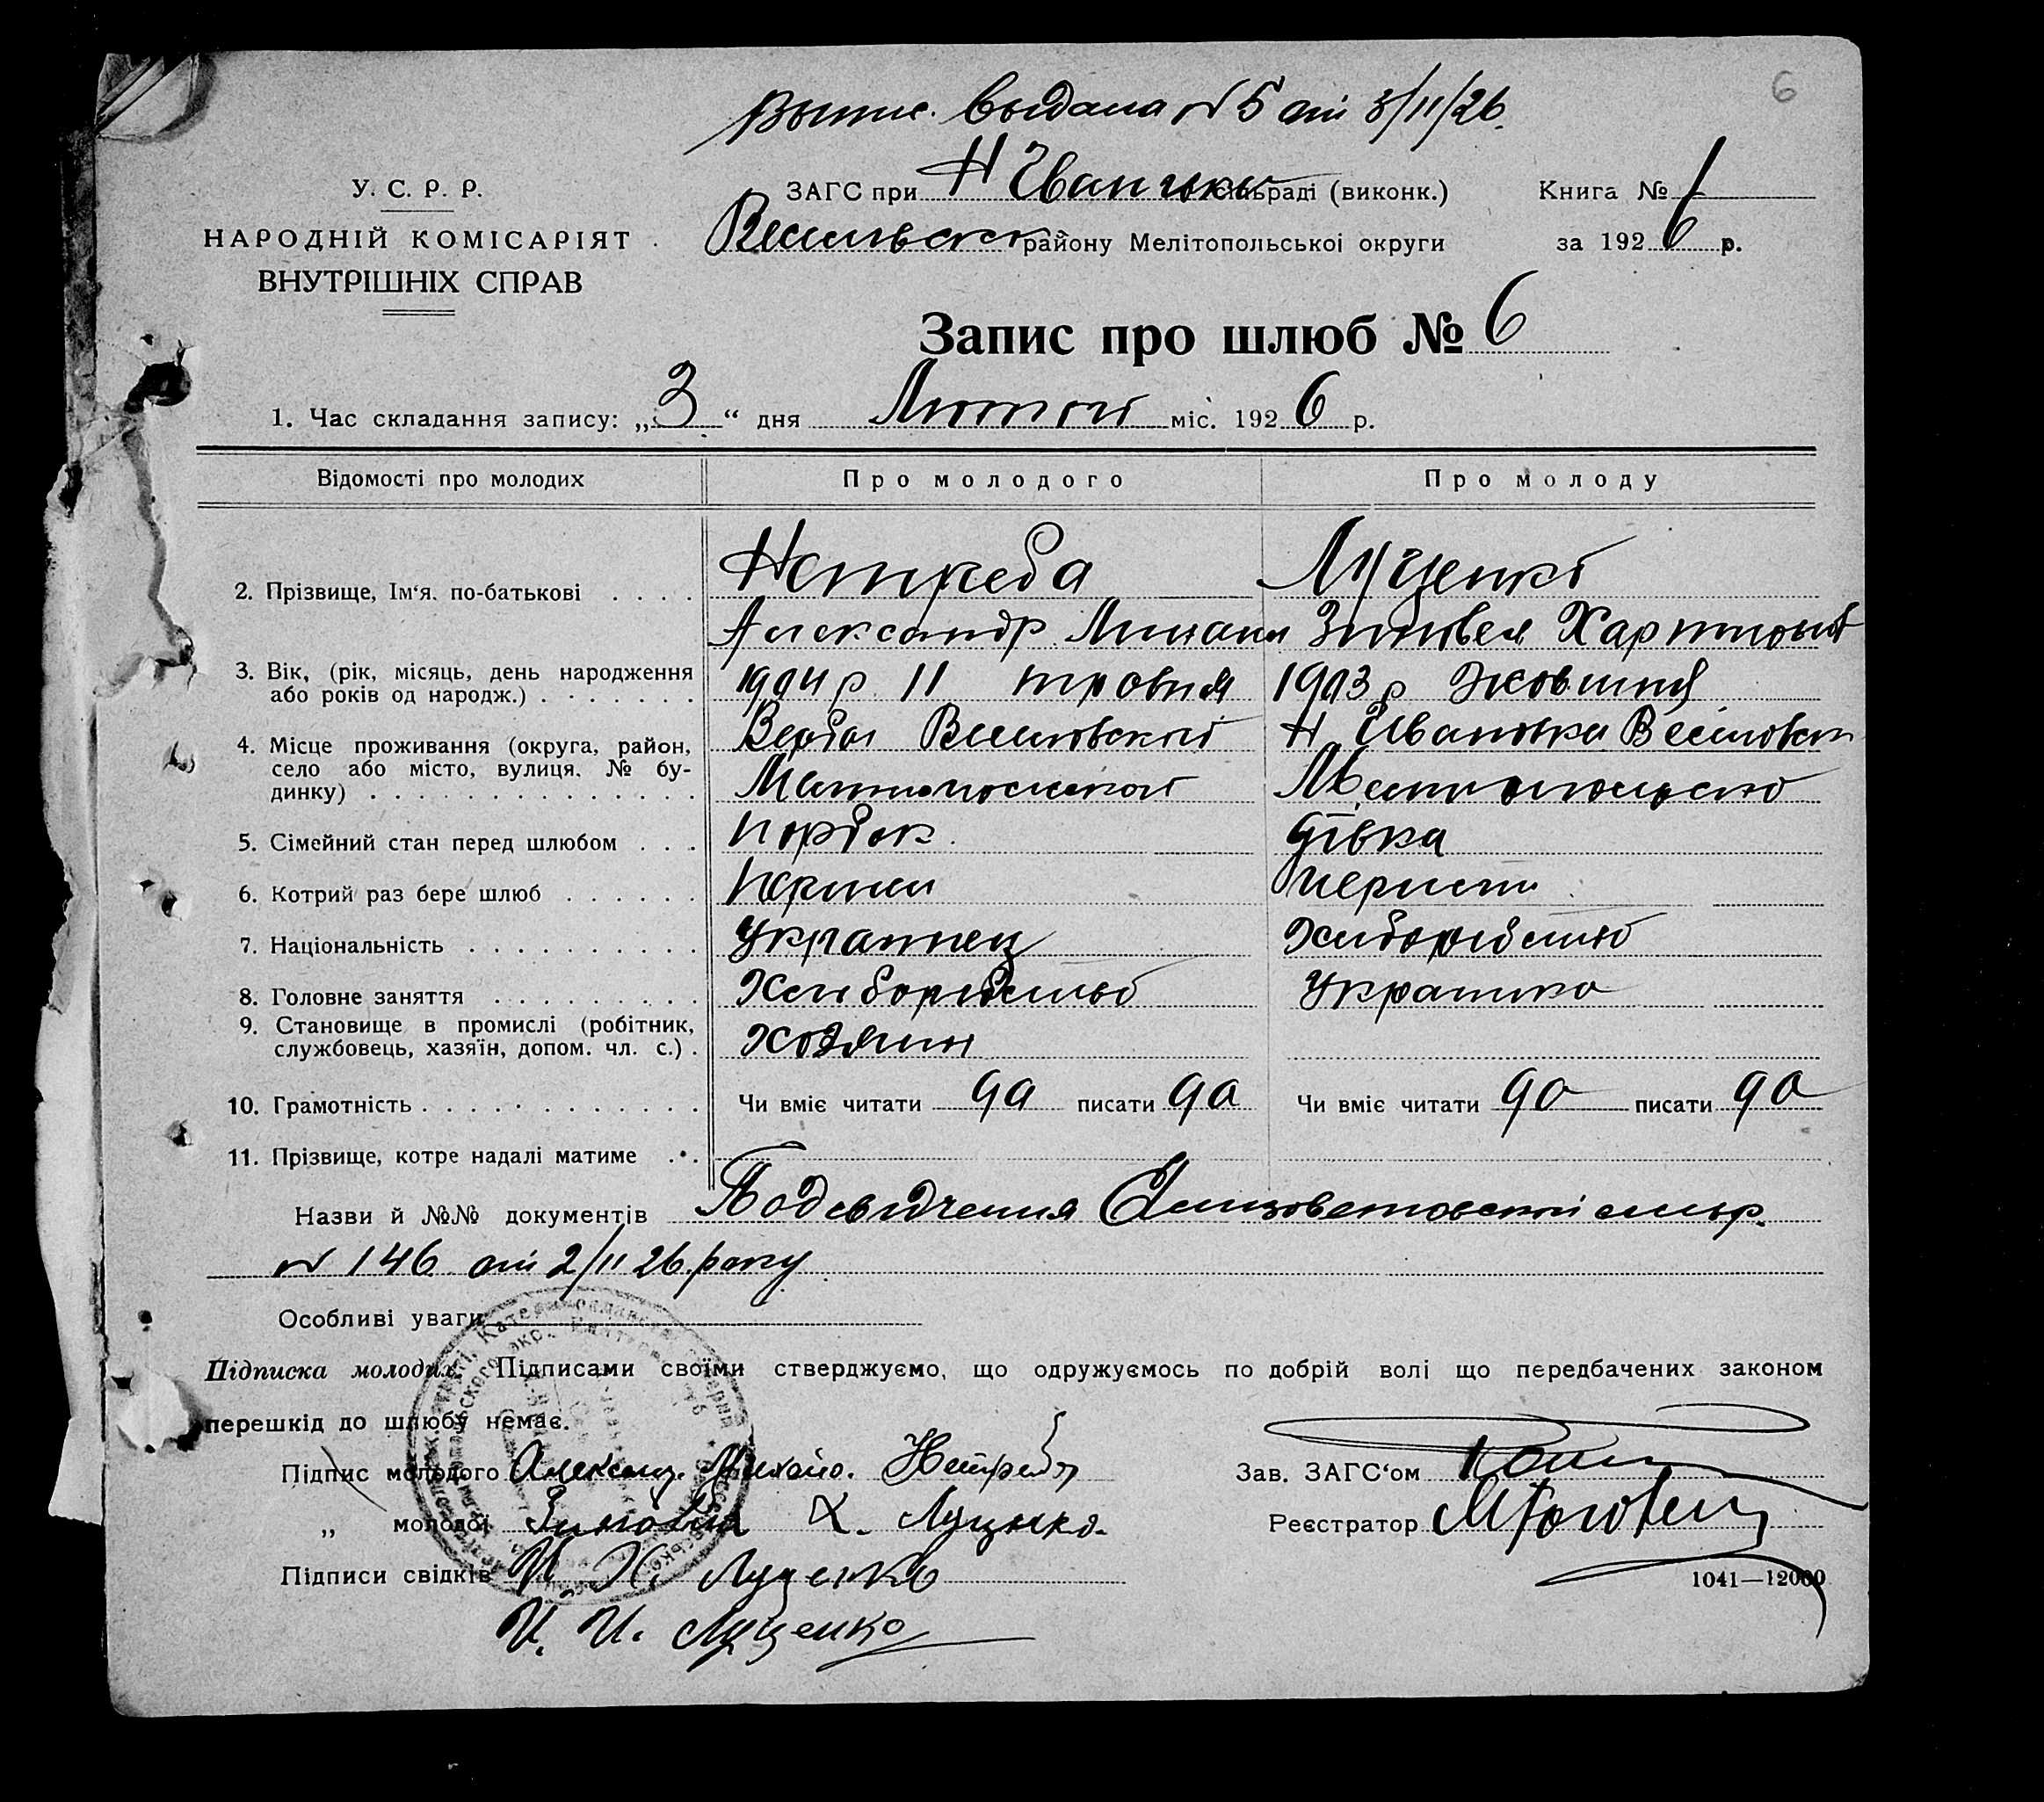 Выпис. выдана № 5 от 3/II/26.
6
У. С. Р. Р.
НАРОДНІЙ КОМІСАРІЯТ
ВНУТРІШНІХ СПРАВ
ЗАГС при Н Іваньки сільраді (виконк.) Книга № 1
Весельвск району Мелітопольської округи за 1926 р.
Запис про шлюб № 6
1. Час складання запису: „3“ дня Лютого міс. 1926 р.
Відомості про молодих Про молодого Про молоду
2. Прізвище, Ім'я, по-батькові . . . . Нетреба Луценко
Александр Михаил Зиновея Харитонов
3. Вік, (рік, місяць, день народження або років од народж.) . . . . . . . 1904 р 11 травня 1903 р Жовтня
4. Місце проживання (округа, район, село або місто, вулиця, № будинку) . . . . . . . . . . . . . . . Веселовской Н Ивановка Веселовск
Мелитопольской Мелитопольсько
5. Сімейний стан перед шлюбом . . . Парубок. дівка
6. Котрий раз бере шлюб . . . . . . Первий перший
7. Національність . . . . . . . . . . Украинец Хлиборобство
8. Головне заняття . . . . . . . . . Хлиборобство Украинка
9. Становище в промислі (робітник, службовець, хазяїн, допом. чл. с.) . Хозяин
10. Грамотність . . . . . . . . . . . . Чи вміє читати да писати да Чи вміє читати да писати да
11. Прізвище, котре надалі матиме . . .
Назви й №№ документів Посвідчення Елизаветовской сильр.
№ 146 от 2/II 26. року
Особливі уваги
Підписка молодих. Підписами своїми стверджуємо, що одружуємось по добрій волі що передбачених законом
перешкід до шлюбу немає.
Підпис молодого Александ. Михайло. Нетреба Зав. ЗАГС'ом
„ молодої Зиновія Х. Луценко. Реєстратор
Підписи свідків И. Х. Луценко
И. И. Луценко
1041—12000